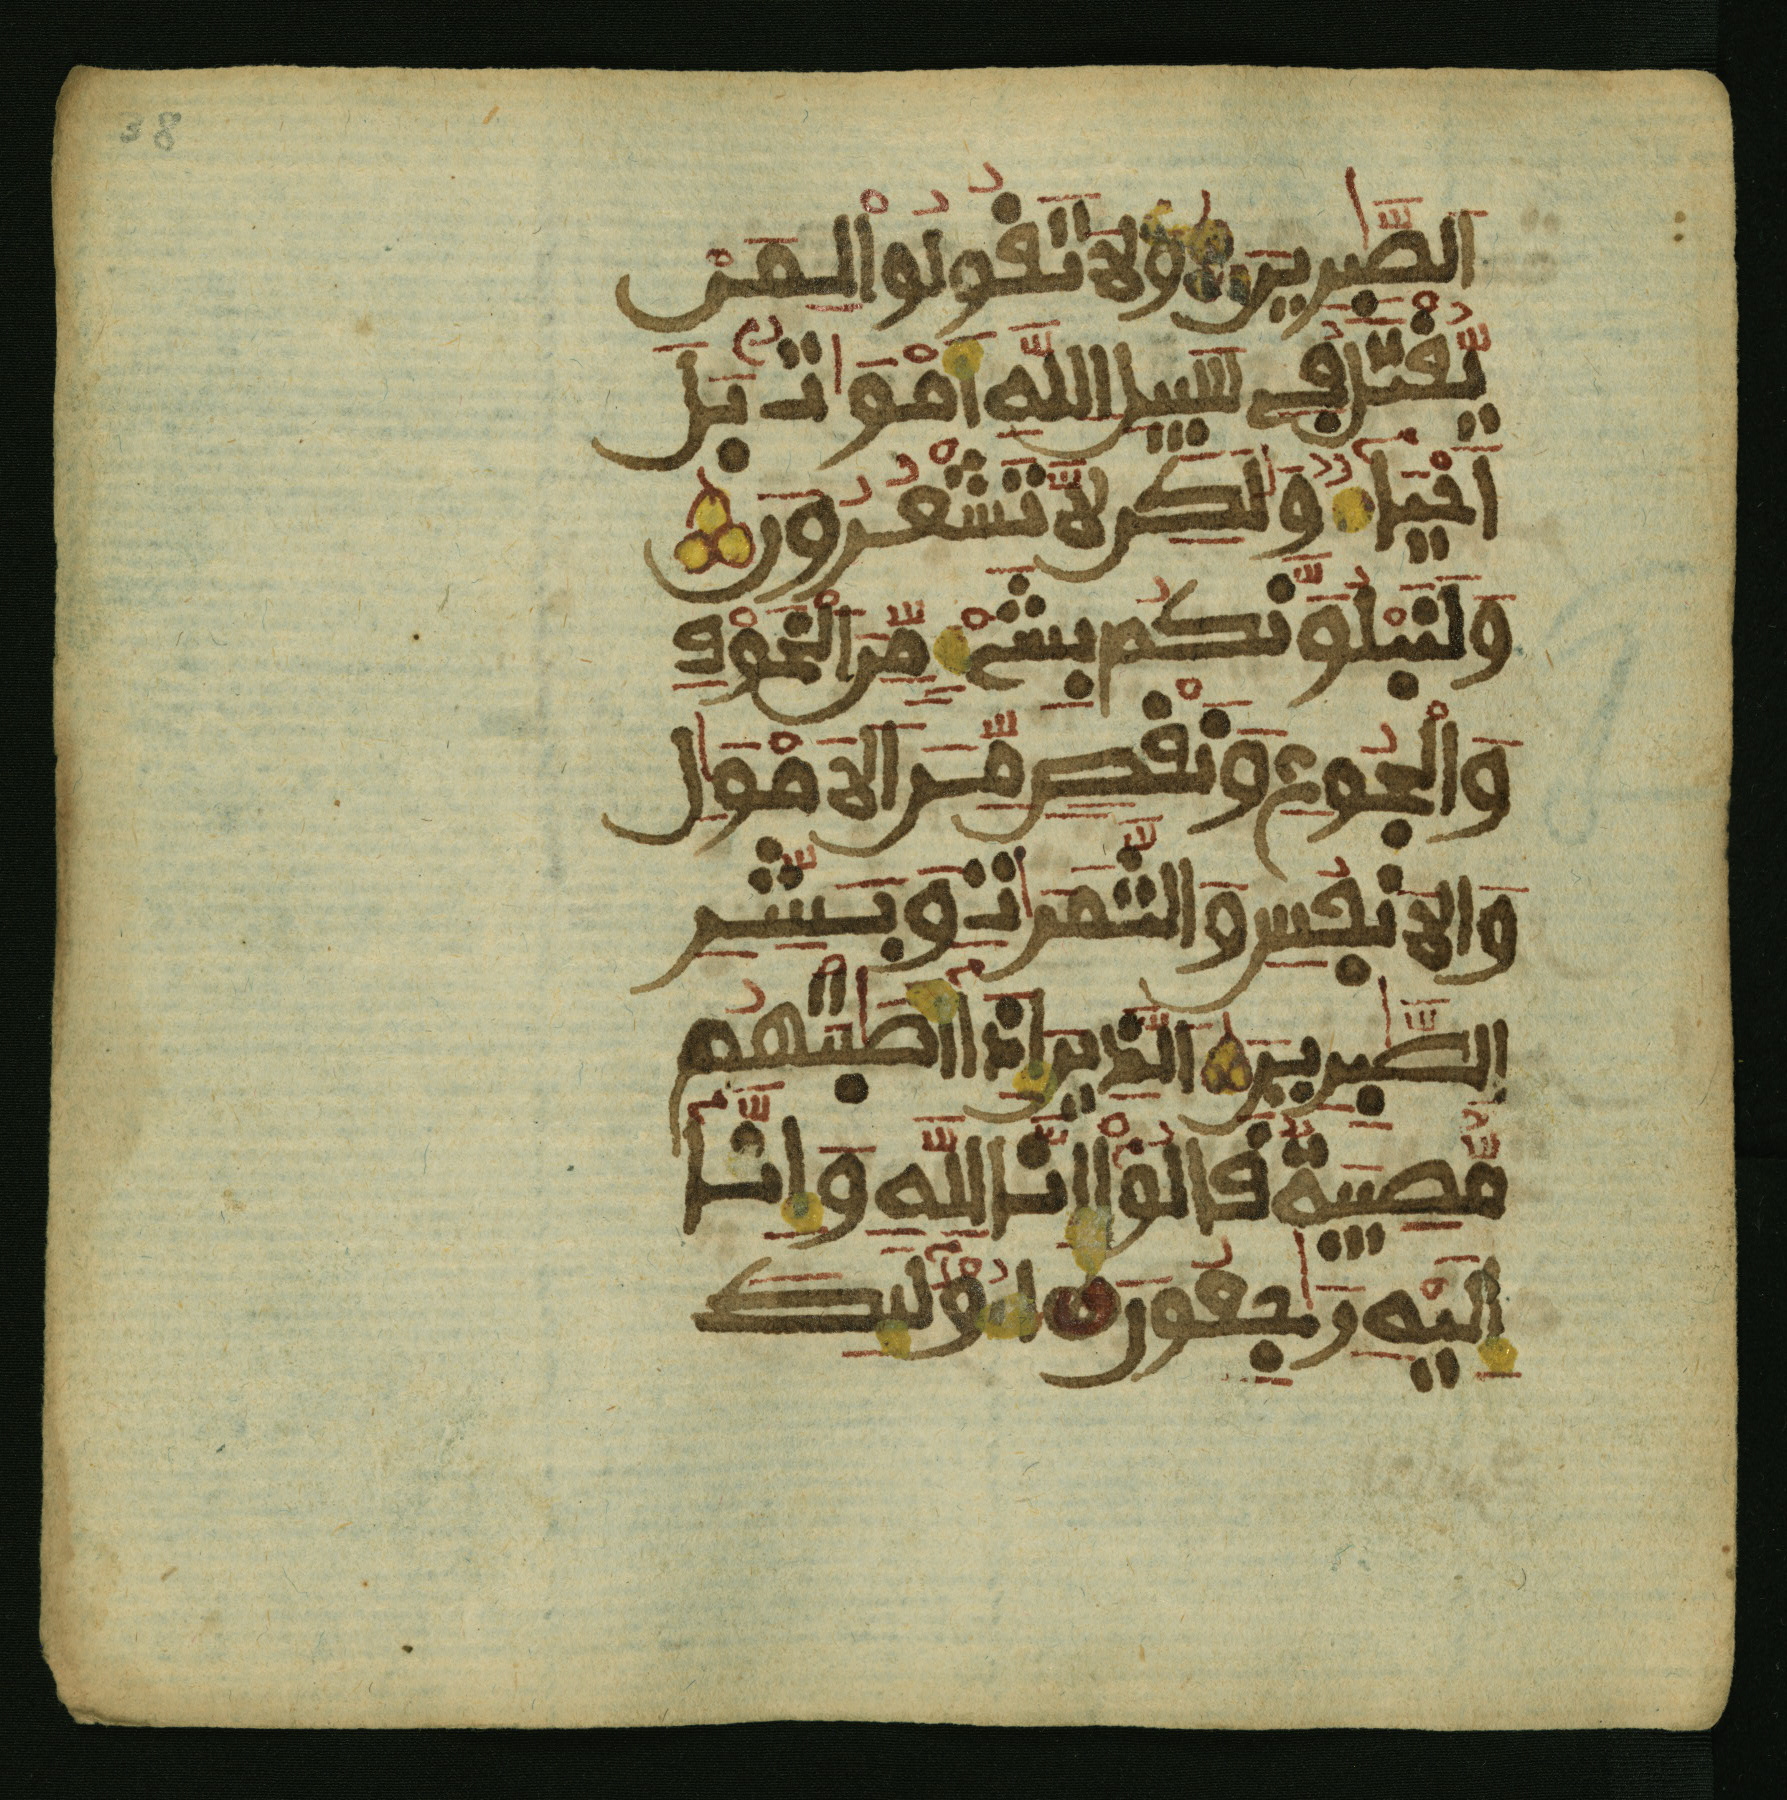 38
الصَّٰبِرِينَ وَلَا تَقُولُوا۟ لِمَنْ
يُّقْتَلُ فِي سَبِيلِ اللَّهِ أَمْوَاتٌ بَلَ
اَحْيَآءٌ وَلَٰكِن لَّا تَشْعُرُونَ
وَلَنَبْلُوَنَّكُم بِشَيْءٍ مِّنَ الْخَوْفِ
وَالْجُوعِ وَنَقْصٍ مِّنَ الَامْوَٰلِ
وَالَانفُسِ وَالثَّمَرَٰتِ وَبَشِّرِ
الصَّٰبِرِينَ الَّذِينَ إِذَا أَصَٰبَتْهُم
مُّصِيبَةٌ قَالُوٓا۟ إِنَّا لِلَّهِ وَإِنَّآ
إِلَيْهِ رَٰجِعُونَ أُوْلَٰٓئِكَ